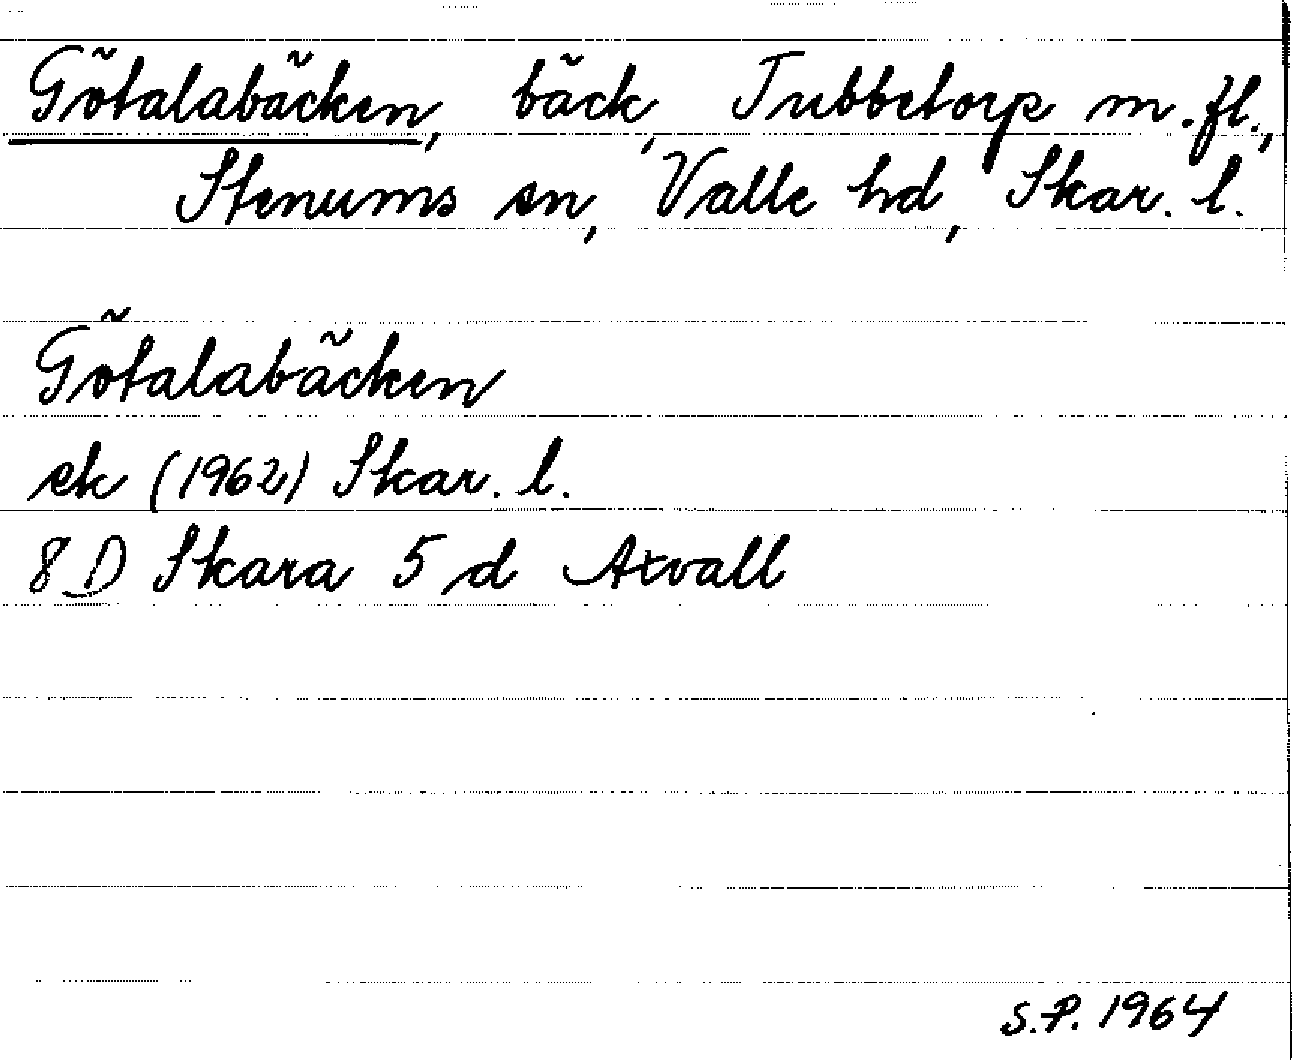 Götalabäcken, bäck, Tubbetorp m.fl.,
Stenums sn, Valle hd, Skar. l.
Götalabäcken
ek (1962) Skar. l.
8 D Skara 5 d Axvall
S.P. 1964